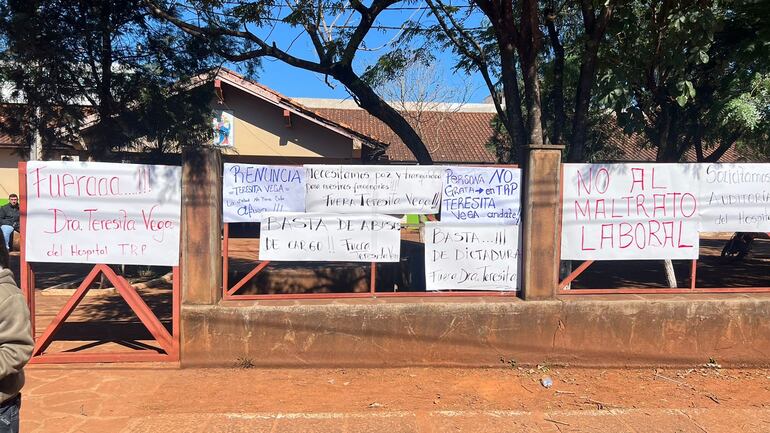 Fueraaa.....!!!
Dra. Teresita Vega
del Hospital TRP
RENUNCIA
TERESITA VEGA
la salud no tiene
Necesitamos paz y tranquilidad
para nuestros funcionarios!!!
Fuera Teresita Vega!!
BASTA DE ABUSO
DE CARGO!! Fuera
Teresita Vega
PERSONA NO
GRATA en TRP
TERESITA
VEGA andate!
BASTA....!!!
DE DICTADURA
Fuera Dra. Teresita
NO AL
MALTRATO
LABORAL
Solicitamos
Auditoria
del Hospital